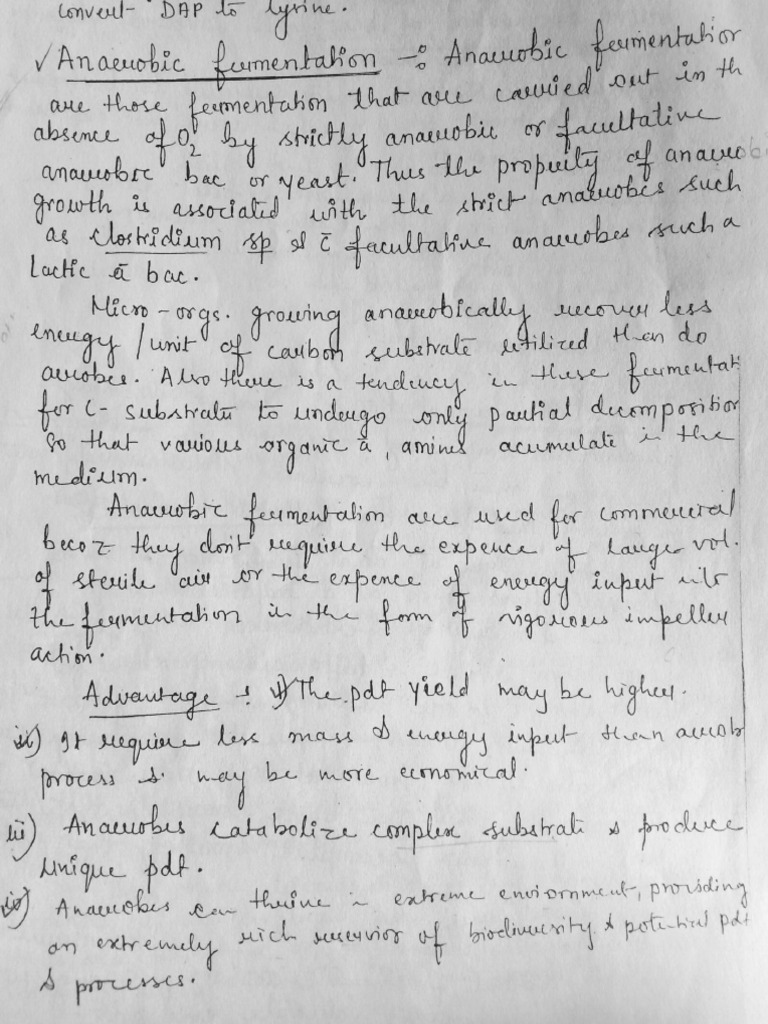 convert DAP to lysine.
✓ Anaerobic fermentation -: Anaerobic fermentation
are those fermentation that are carried out in th
absence of O2 by strictly anaerobic or facultative
anaerobic bac or yeast. Thus the property of anaerobi
growth is associated with the strict anaerobes such
as Clostridium sp & c̄ facultative anaerobes such a
Lactic ā bac.
Micro-orgs. growing anaerobically recover less
energy / unit of carbon substrate utilized than do
aerobes. Also there is a tendency in these fermentati
for C- substrate to undergo only partial decomposition
so that various organic ā, amines acumulate in the
medium.
Anaerobic fermentation are used for commercial
becoz they don't require the expence of large vol.
of sterile air or the expence of energy input into
the fermentation in the form of vigorous impeller
action.
Advantage : i) The pdt yield may be higher.
ii) It require less mass & energy input than aerob
process & may be more economical.
iii) Anaerobes catabolize complex substrate & produce
unique pdt.
iv) Anaerobes can thrive in extreme enviornment, providing
an extremely rich reservior of biodiversity & potential pdt
& processes.